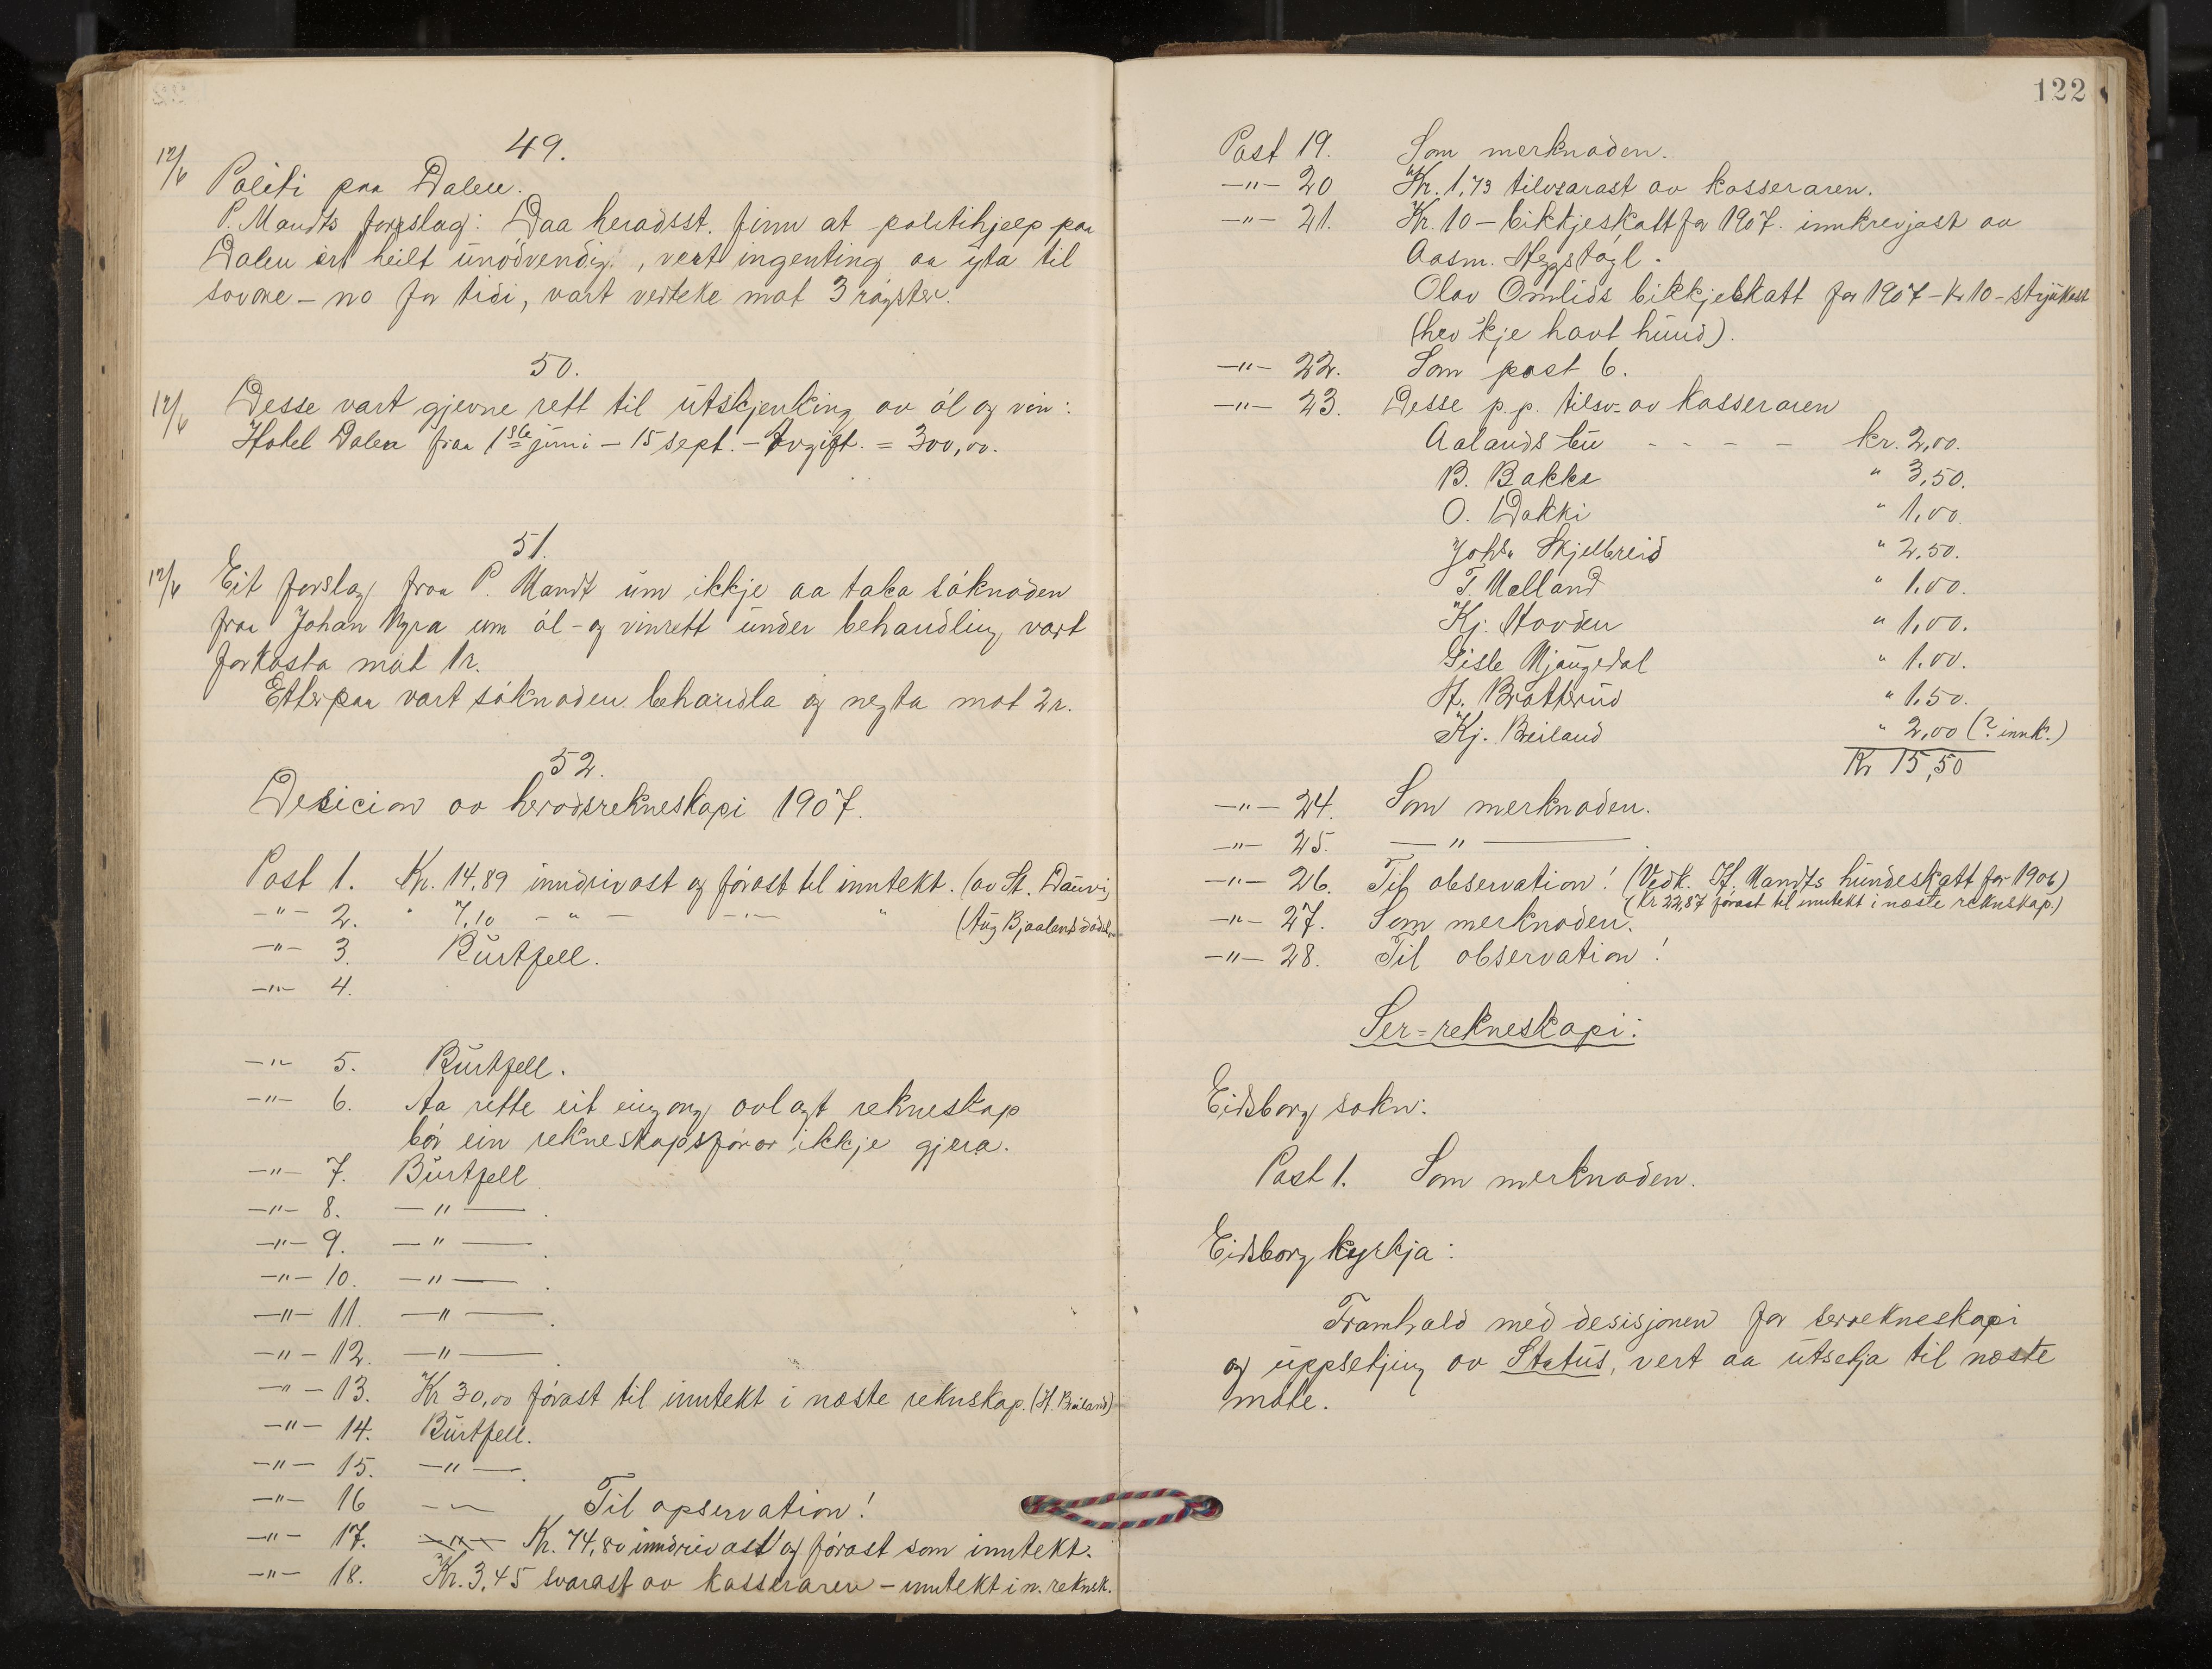 49.
12/6 Politi paa Dalen.
P. Mandts forslag: Daa heradsst. finn at politihjelp paa
Dalen er heilt unödvendig, vert ingenting aa yta til
sovore - no for tidi, vart vedteke mot 3 röyster.
50.
12/6 Desse vart gjevne rett til utskjenking av öl og vin:
Hotel Dalen fraa 1ste juni - 15 sept. - Avgift. = 300,00.
51.
12/6 Eit forslag fraa P. Mandt um ikkje aa taka söknaden
fraa Johan Nyra um öl- og vinrett under behandling, vart
forkasta mot 1 r.
Etterpaa vart söknaden behandla og negta mot 2 r.
52.
Desicion av heradsrekneskapi 1907.
Post 1. Kr. 14,89 inndrivast og förast til inntekt. (av St. Dauvi)
-"- 2. " 7,10 - " - -"- " (Aug Bjaaland
-"- 3. Burtfell.
-"- 4.
-"- 5. Burtfell.
-"- 6. Aa rette eit eingong avlagt rekneskap
bör ein rekneskapsförar ikkje gjera.
-"- 7. Burtfell
-"- 8. -"- .
-"- 9. -"- .
-"- 10. -"- .
-"- 11. -"- .
-"- 12. -"- .
-"- 13. Kr 30,00 förast til inntekt i næste reknskap. (H. Breiland)
-"- 14. Burtfell.
-"- 15. -"- .
-"- 16 -"- Til opservation!
-"- 17. -"- Kr. 74,80 inndrivast og förast som inntekt.
-"- 18. Kr. 3,45 svarast av kasseraren - inntekt i n. reknsk.
122
Post 19. Som merknaden.
-"- 20 Kr. 1,73 tilsvarast av kasseraren.
-"- 21. Kr. 10 - bikkjeskatt for 1907. innkrevjast av
Aasm. Heggtögl.
Olav Omlids bikkjeskatt for 1907 - Kr 10 - strjukast
(hev 'kje havt hund).
-"- 22. Som post 6.
-"- 23. Desse p.p. tilsv. av Kasseraren
Aalands bu - - - - kr. 2,00.
B. Bakka " 3,50.
O. Dakki " 1,00.
Johs. Skjelbreid " 2,50.
T. Malland " 1,00.
Kj. Hovden " 1,00.
Sisle Mjaugedal " 1,00.
H. Bratterud " 1,50.
Kj. Breiland " 2,00 (? innk.)
Kr 15,50
-"- 24. Som merknaden.
-"- 25. -"- .
-"- 26. Til observation! (Vedk. H. Mandts hundeskatt for 1906)
(Kr 22,87 förast til inntekt i næste reknskap.)
-"- 27. Som merknaden.
-"- 28. Til observation!
Ser-rekneskapi:
Eidsborg sokn:
Post 1. Som merknaden.
Eidsborg kyrkja:
Framhald med desisjonen for serrekneskapi
og uppsetjing av Status, vert aa utsetja til næste
möte.